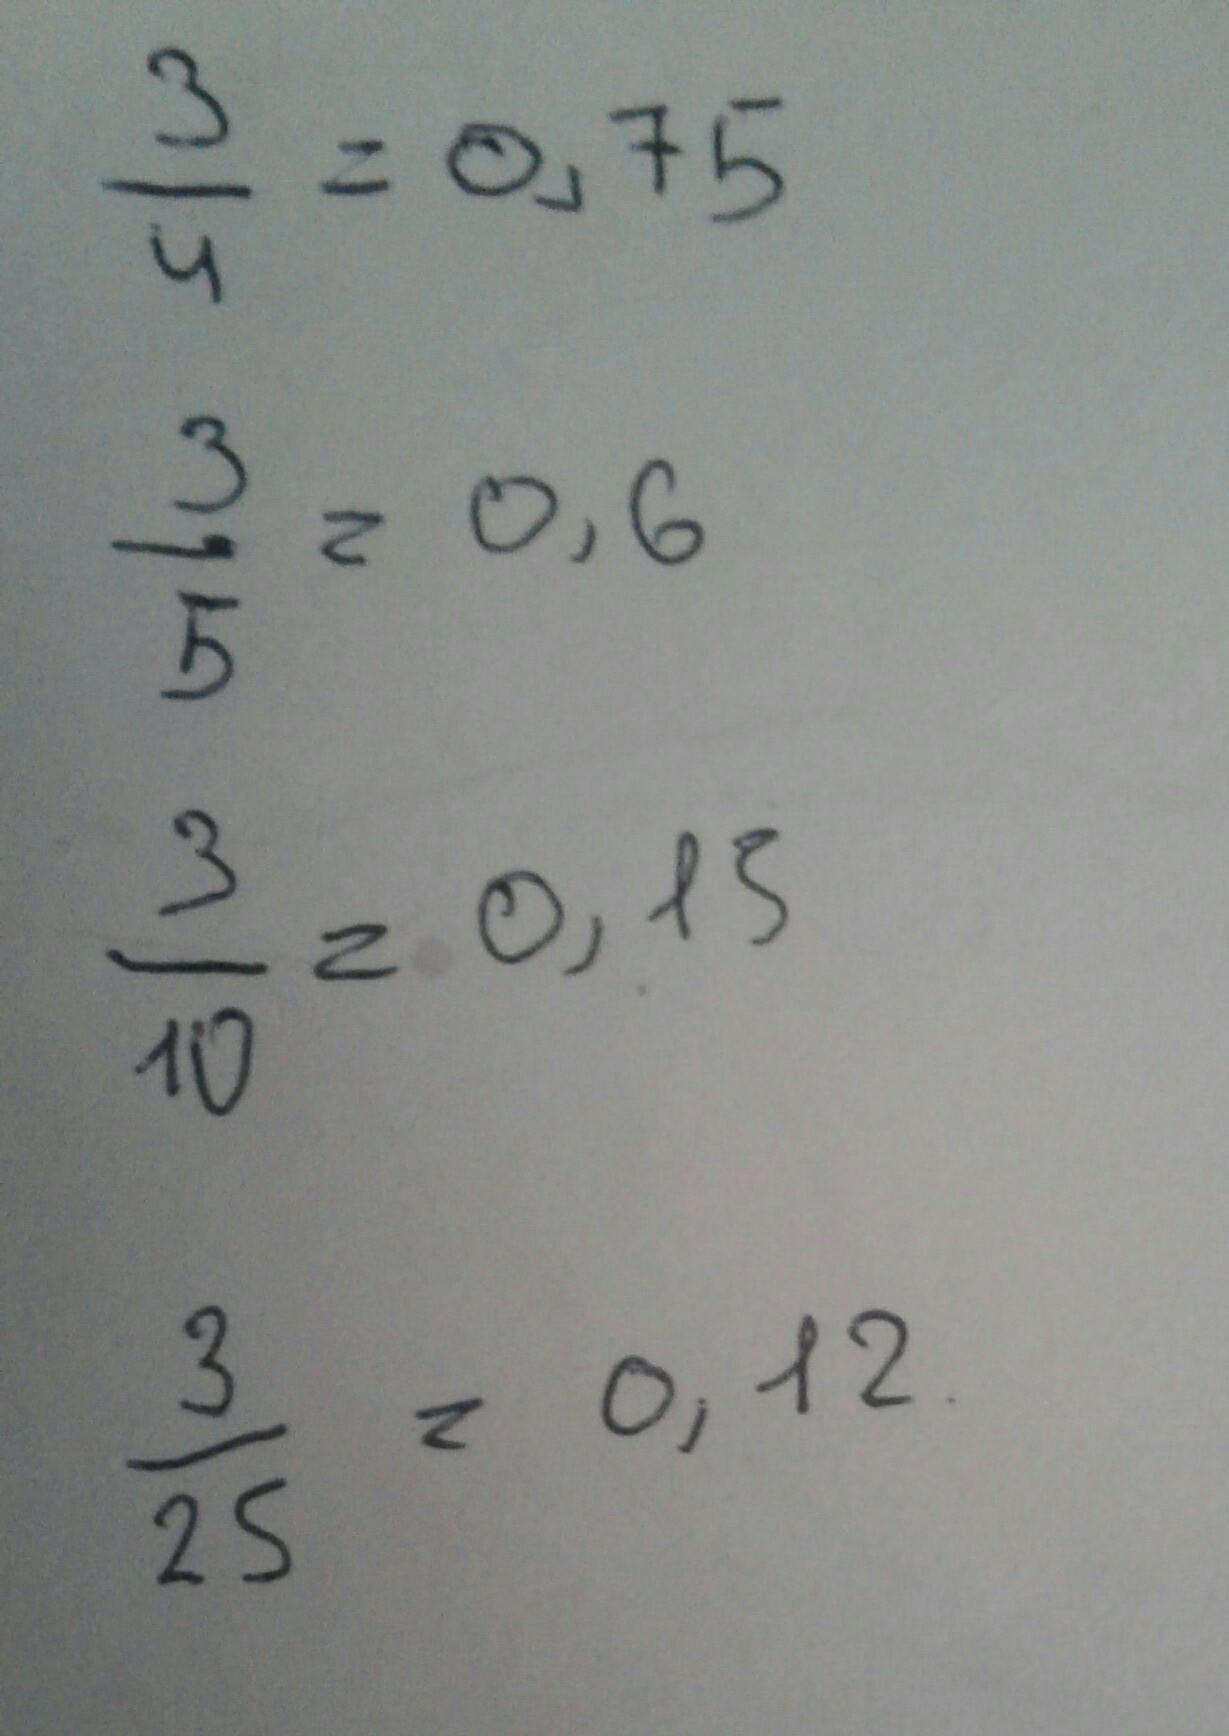 3/4 = 0,75
3/5 = 0,6
3/10 = 0,15
3/25 = 0,12